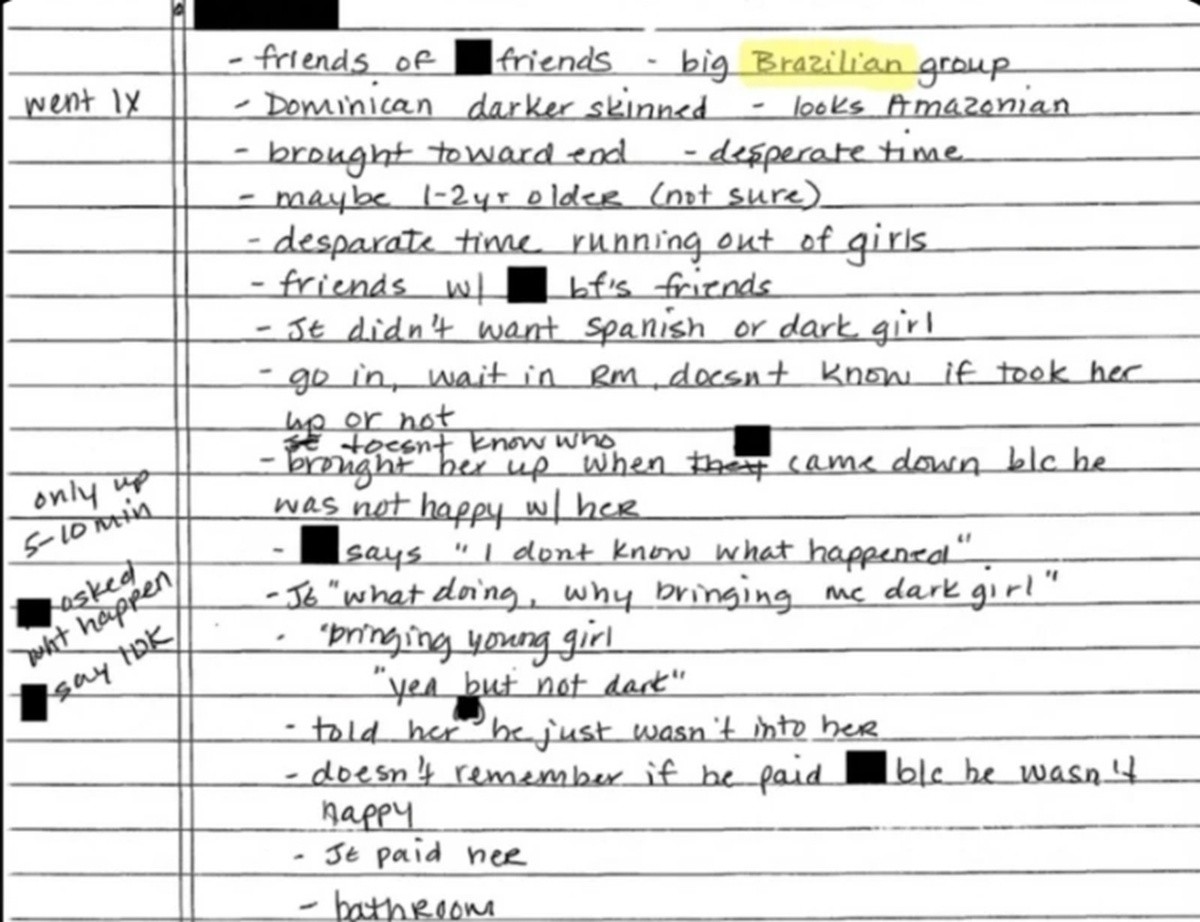 - friends of friends - big Brazilian group
went 1x
- Dominican darker skinned - looks Amazonian
- brought toward end - desperate time
- maybe 1-2yr older (not sure)
- desparate time running out of girls
- friends w/ bf's friends
- JE didn't want Spanish or dark girl
- go in, wait in Rm, doesnt know if took her
up or not
doesnt know who
- brought her up when they came down b/c he
was not happy w/ her
only up
5-10 min
- says "I dont know what happened"
asked
what happen
say IDK
- JE "what doing, why bringing me dark girl"
- "bringing young girl
"yea but not dark"
- told her he just wasn't into her
- doesn't remember if he paid b/c he wasn't
happy
- JE paid her
- bathroom